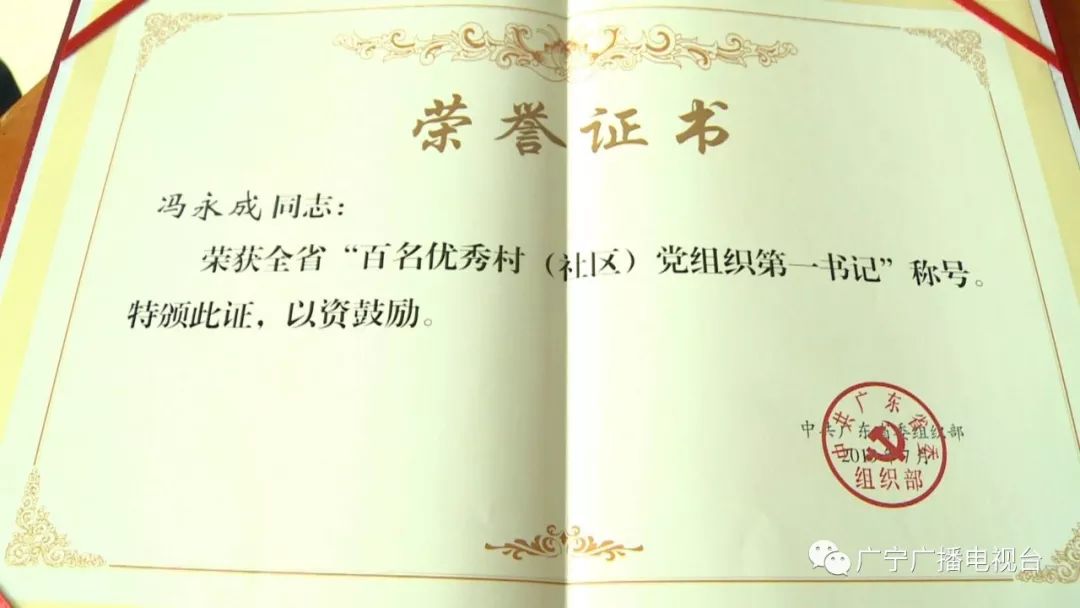 荣誉证书
冯永成同志：
荣获全省“百名优秀村（社区）党组织第一书记”称号。
特颁此证，以资鼓励。
中共广东省委组织部
中共广东省委
组织部
广宁广播电视台